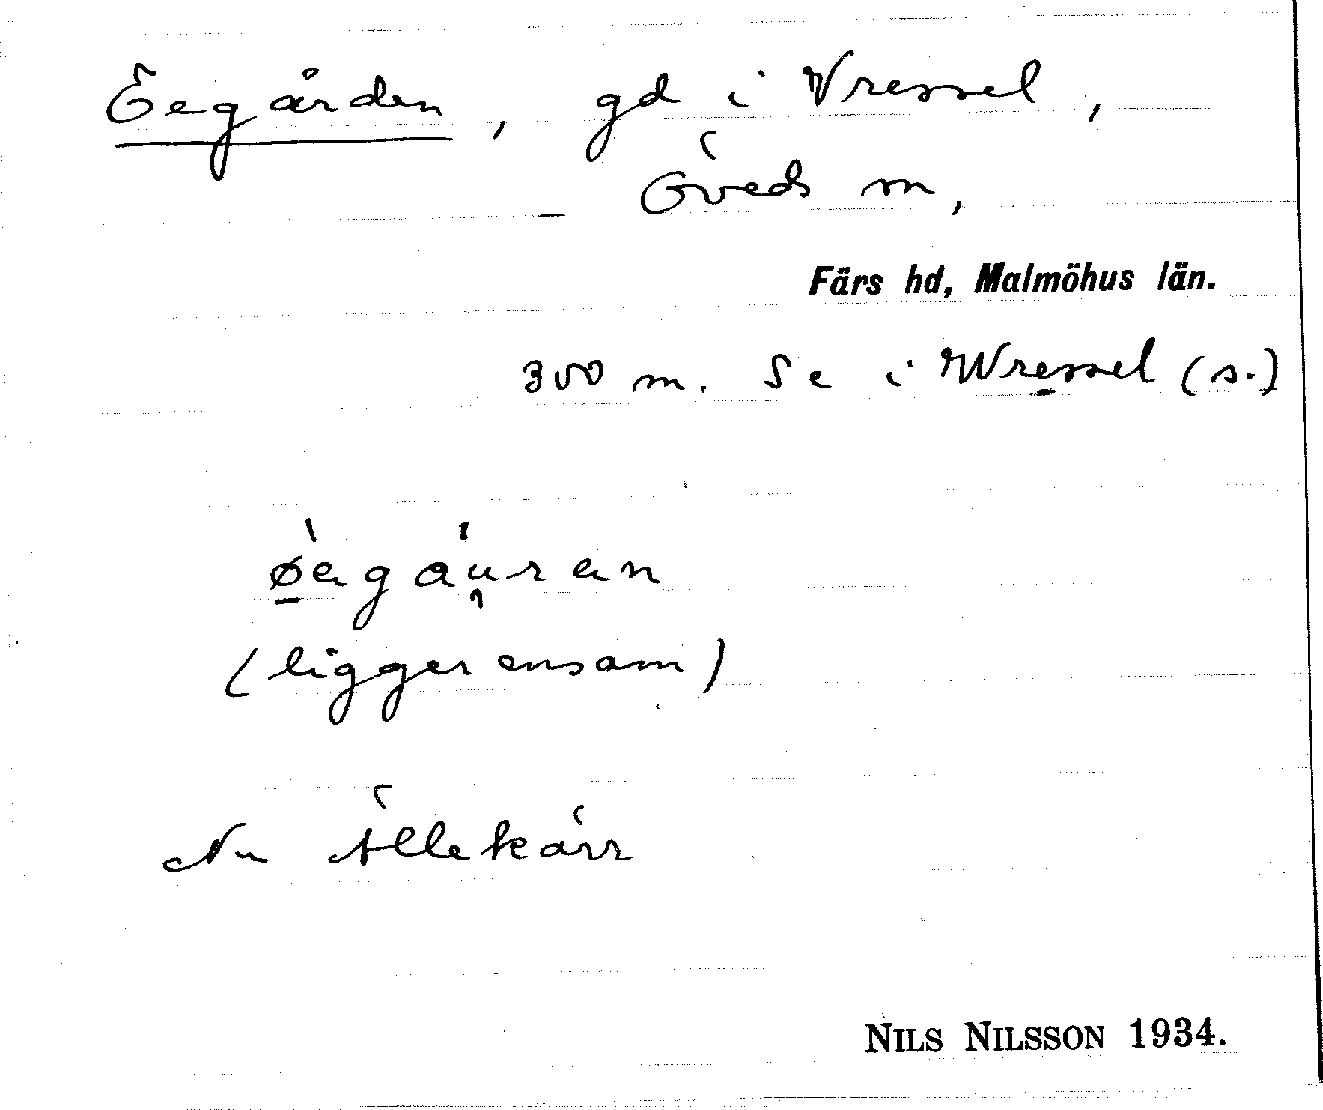 Öegården, gd i Vressel,
Öveds sn,
Färs hd, Malmöhus län.
300 m. S e i Vressel (s.)
øegau̯ren
(ligger ensam)
Nu Ällekärr
NILS NILSSON 1934.